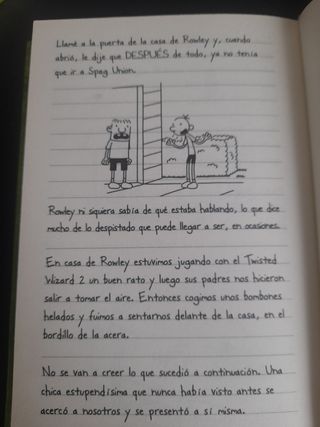 Llamé a la puerta de la casa de Rowley y, cuando
abrió, le dije que DESPUÉS de todo, ya no tenía
que ir a Spag Union.
Rowley ni siquiera sabía de qué estaba hablando, lo que dice
mucho de lo despistado que puede llegar a ser, en ocasiones.
En casa de Rowley estuvimos jugando con el Twisted
Wizard 2 un buen rato y luego sus padres nos hicieron
salir a tomar el aire. Entonces cogimos unos bombones
helados y fuimos a sentarnos delante de la casa, en el
bordillo de la acera.
No se van a creer lo que sucedió a continuación. Una
chica estupendísima que nunca había visto antes se
acercó a nosotros y se presentó a sí misma.